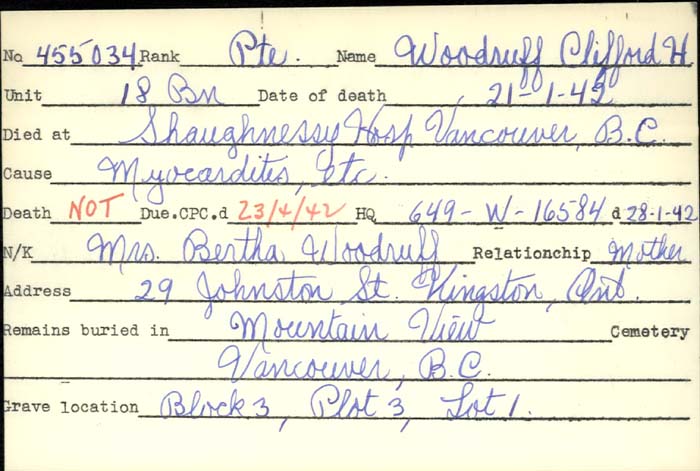 No 455034 Rank Pte. Name Woodruff Clifford H
Unit 18 Bn Date of death 21-1-42
Died at Shaughnessy Hosp Vancouver, B.C.
Cause Myocardites, etc.
Death NOT Due.CPC.d 23/4/42 HQ 649-W-16584 d 28-1-42
N/K Mrs. Bertha Woodruff Relationchip Mother
Address 29 Johnston St. Kingston, Ont.
Remains buried in Mountain View Cemetery
Vancouver, B.C.
Grave location Block 3, Plot 3, Lot 1.